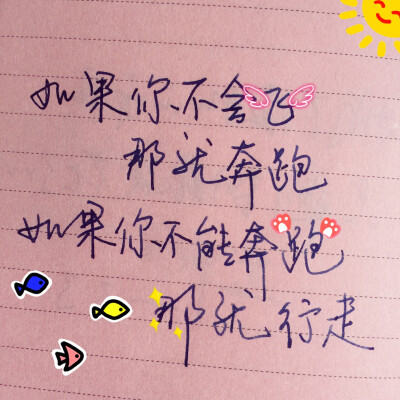 如果你不会飞
那就奔跑
如果你不能奔跑
那就行走